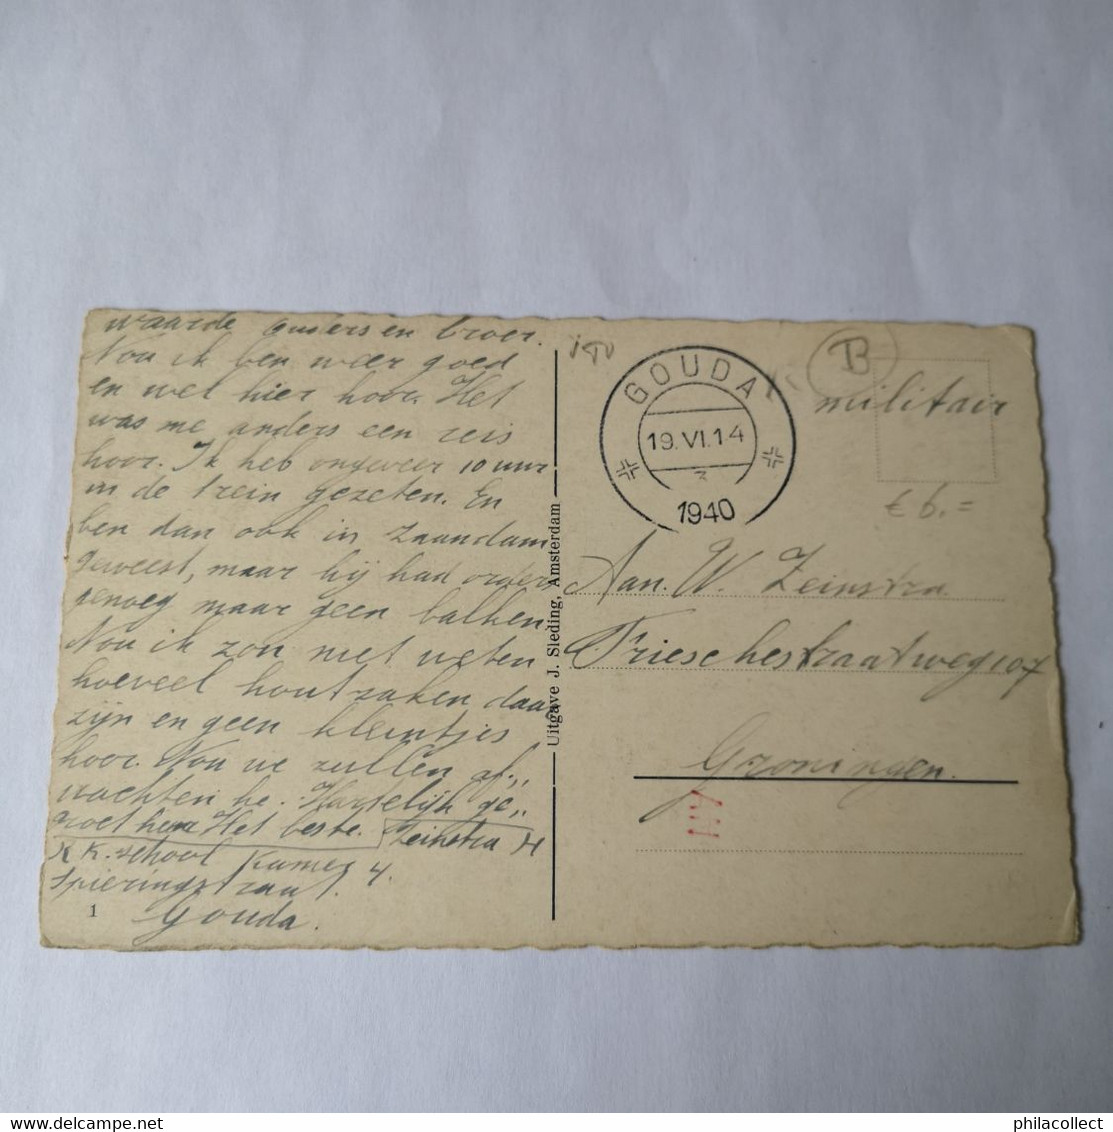 waarde ouders en broer.
Nou ik ben weer goed
en wel hier hoor. Het
was me anders een reis
hoor. Ik heb ongeveer 10 uur
in de trein gezeten. En
ben dan ook in Zaandam
geweest, maar hij had orders
genoeg maar geen balken
Nou ik zou niet weten
hoeveel houtzaken daar
zijn en geen kleintjes
hoor. Nou we zullen af„
wachten he. Hartelijk ge„
groet hoor Het beste. Zeinstra H
R.K. school Kamer 4.
Spieringstraat.
Gouda.
1
Uitgave J. Sleding, Amsterdam
GOUDA
19.VI.14
3
1940
B
militair
€ 6.=
Aan. W. Zeinstra
Frieschestraatweg 107
Groningen.
philacollect